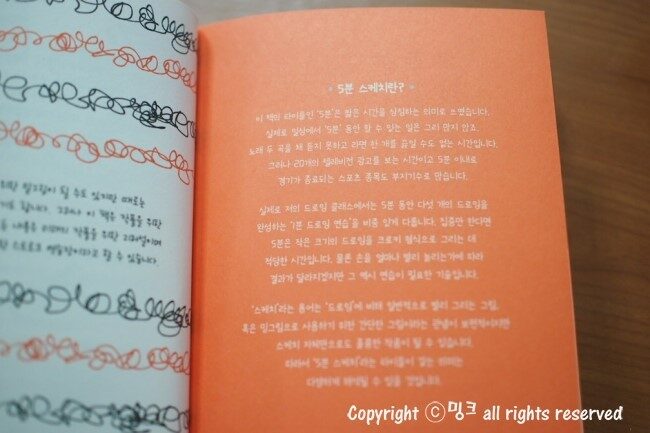 위한 밑그림이 될 수도 있지만 때로는
기도 합니다. 그래서 이 책은 작품을 위한
5분 스케치란?
이 책의 타이틀인 '5분'은 짧은 시간을 상징하는 의미로 쓰였습니다.
실제로 일상에서 '5분' 동안 할 수 있는 일은 그리 많지 않죠.
노래 두 곡을 채 듣지 못하고 라면 한 개를 끓일 수도 없는 시간입니다.
그러나 20개의 텔레비전 광고를 보는 시간이고 5분 이내로
경기가 종료되는 스포츠 종목도 부지기수로 많습니다.
실제로 저의 드로잉 클래스에서는 5분 동안 다섯 개의 드로잉을
완성하는 '1분 드로잉 연습'을 비중 있게 다룹니다. 집중만 한다면
5분은 작은 크기의 드로잉을 크로키 형식으로 그리는 데
적당한 시간입니다. 물론 손을 얼마나 빨리 놀리는가에 따라
결과가 달라지겠지만 그 역시 연습이 필요한 기술입니다.
'스케치'라는 용어는 '드로잉'에 비해 일반적으로 빨리 그리는 그림,
혹은 밑그림으로 사용하기 위한 간단한 그림이라는 관념이 보편적이지만
스케치 자체만으로도 훌륭한 작품이 될 수 있습니다.
따라서 '5분 스케치'라는 타이틀이 갖는 의미는
다양하게 해석될 수 있을 것입니다.
Copyright ⓒ밍크 all rights reserved